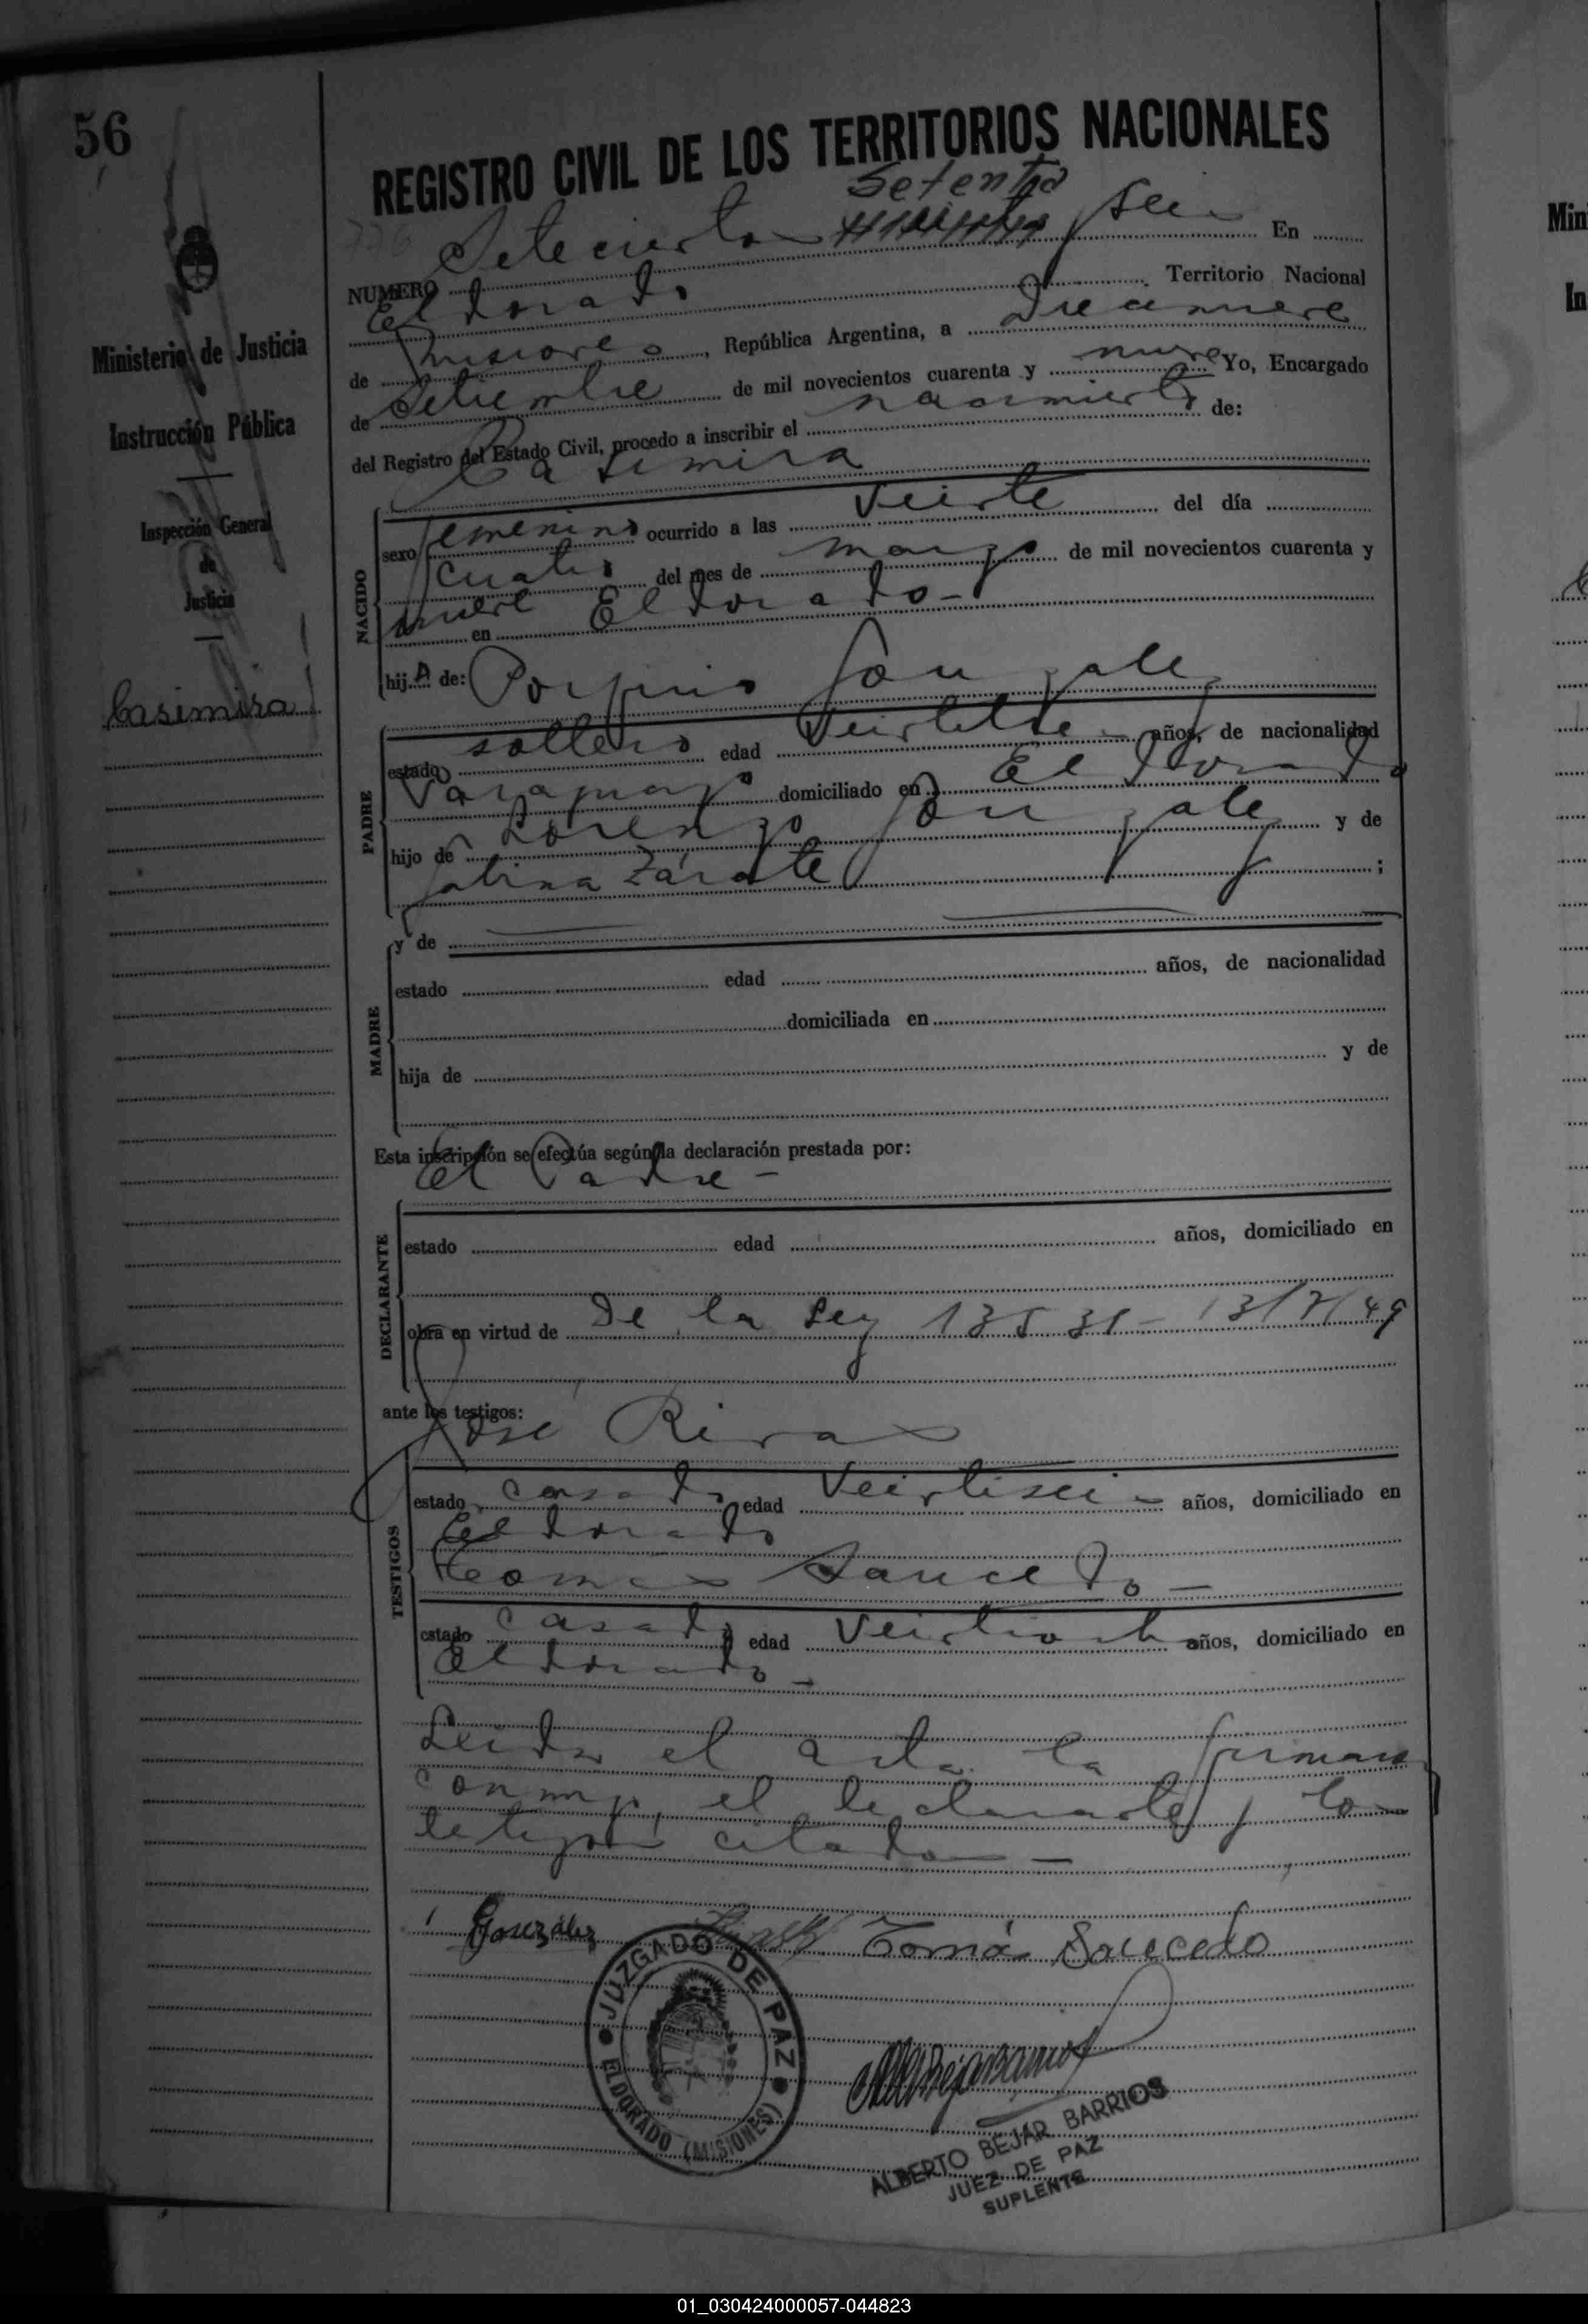 56
REGISTRO CIVIL DE LOS TERRITORIOS NACIONALES
Setenta
NUMERO Setecientos y seis En
Eldorado Territorio Nacional
de Misiones, República Argentina, a Diecinueve
de Setiembre de mil novecientos cuarenta y nueve Yo, Encargado
del Registro del Estado Civil, procedo a inscribir el nacimiento de:
Casimira
NACIDO
sexo femenino ocurrido a las Veinte del día
cuatro del mes de marzo de mil novecientos cuarenta y
nueve en Eldorado -
hija de: Porfirio González
PADRE
estado soltero edad años, de nacionalidad
Paraguayo domiciliado en Eldorado
hijo de Lorenzo González y de
Sabina Zárate ;
MADRE
y de
estado edad años, de nacionalidad
domiciliada en
hija de y de
Esta inscripción se efectúa según la declaración prestada por:
El Padre -
DECLARANTE
estado edad años, domiciliado en
obra en virtud de De la Ley 13531 - 13/7/49
ante los testigos:
José Rivas
TESTIGOS
estado casado edad Veintiseis años, domiciliado en
Eldorado
Tomas Saucedo -
estado casado edad Veintiocho años, domiciliado en
Eldorado -
Leida el acta la firman
conmigo, el declarante y los
testigos citados -
González Tomás Saucedo
JUZGADO DE PAZ
ELDORADO (MISIONES)
ALBERTO BEJAR BARRIOS
JUEZ DE PAZ
SUPLENTE
Ministerio de Justicia
e
Instrucción Pública
Inspección General
de
Justicia
Casimira
Min
In
01_030424000057-044823